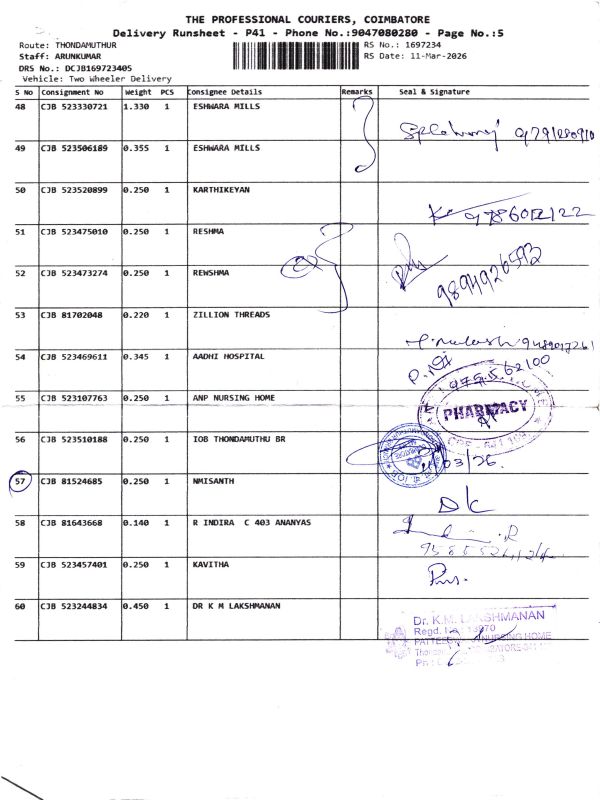 THE PROFESSIONAL COURIERS, COIMBATORE
Delivery Runsheet - P41 - Phone No.:9047080280 - Page No.:5
Route: THONDAMUTHUR
RS No.: 1697234
Staff: ARUNKUMAR
RS Date: 11-Mar-2026
DRS No.: DCJB169723405
Vehicle: Two Wheeler Delivery
S No Consignment No Weight PCS Consignee Details Remarks Seal & Signature
48 CJB 523330721 1.330 1 ESHWARA MILLS
49 CJB 523506189 0.355 1 ESHWARA MILLS
50 CJB 523520899 0.250 1 KARTHIKEYAN
51 CJB 523475010 0.250 1 RESHMA
52 CJB 523473274 0.250 1 REWSHMA
9894926593
53 CJB 81702048 0.220 1 ZILLION THREADS
54 CJB 523469611 0.345 1 AADHI HOSPITAL
55 CJB 523107763 0.250 1 ANP NURSING HOME
PHARMACY
56 CJB 523510188 0.250 1 IOB THONDAMUTHU BR
57 CJB 81524685 0.250 1 NMISANTH
DK
58 CJB 81643668 0.140 1 R INDIRA C 403 ANANYAS
59 CJB 523457401 0.250 1 KAVITHA
60 CJB 523244834 0.450 1 DR K M LAKSHMANAN
Dr. K.M. LAKSHMANAN
Regd. No.
NURSING HOME